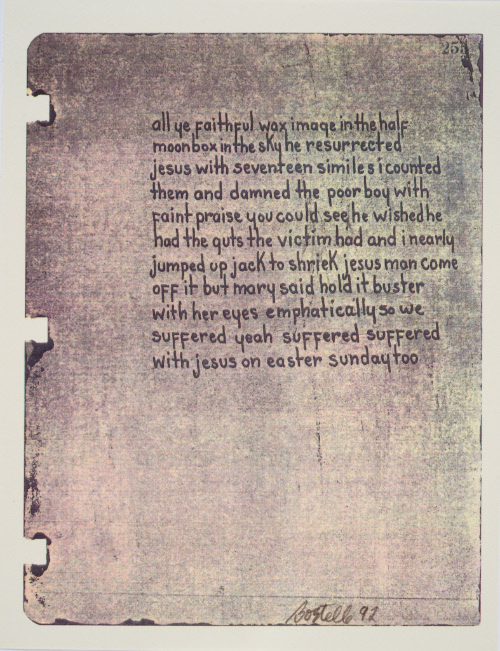 all ye faithful wax image in the half
moon box in the sky he resurrected
jesus with seventeen similes i counted
them and damned the poor boy with
faint praise you could see he wished he
had the guts the victim had and i nearly
jumped up jack to shriek jesus man come
off it but mary said hold it buster
with her eyes emphatically so we
suffered yeah suffered suffered
with jesus on easter sunday too
92